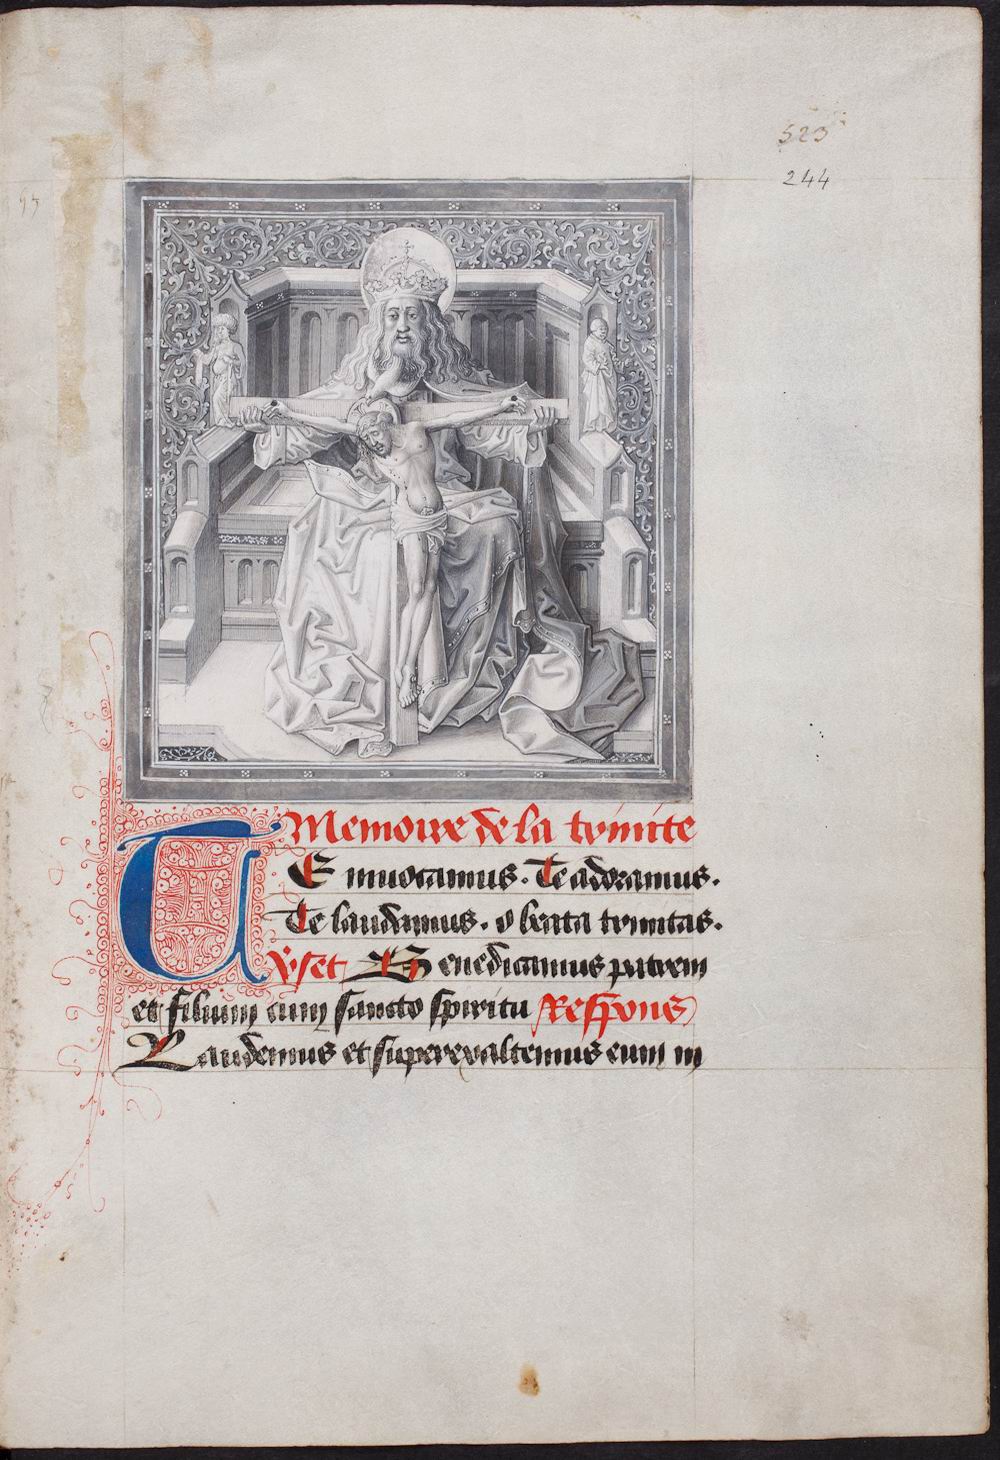 523
244
Memoire de la trinite
TE inuocamus. Te adoramus.
Te laudamus. o beata trinitas.
v̾set Benedicamus patrem
et filium cum sancto spiritu Respons
Laudemus et superexaltemus eum in